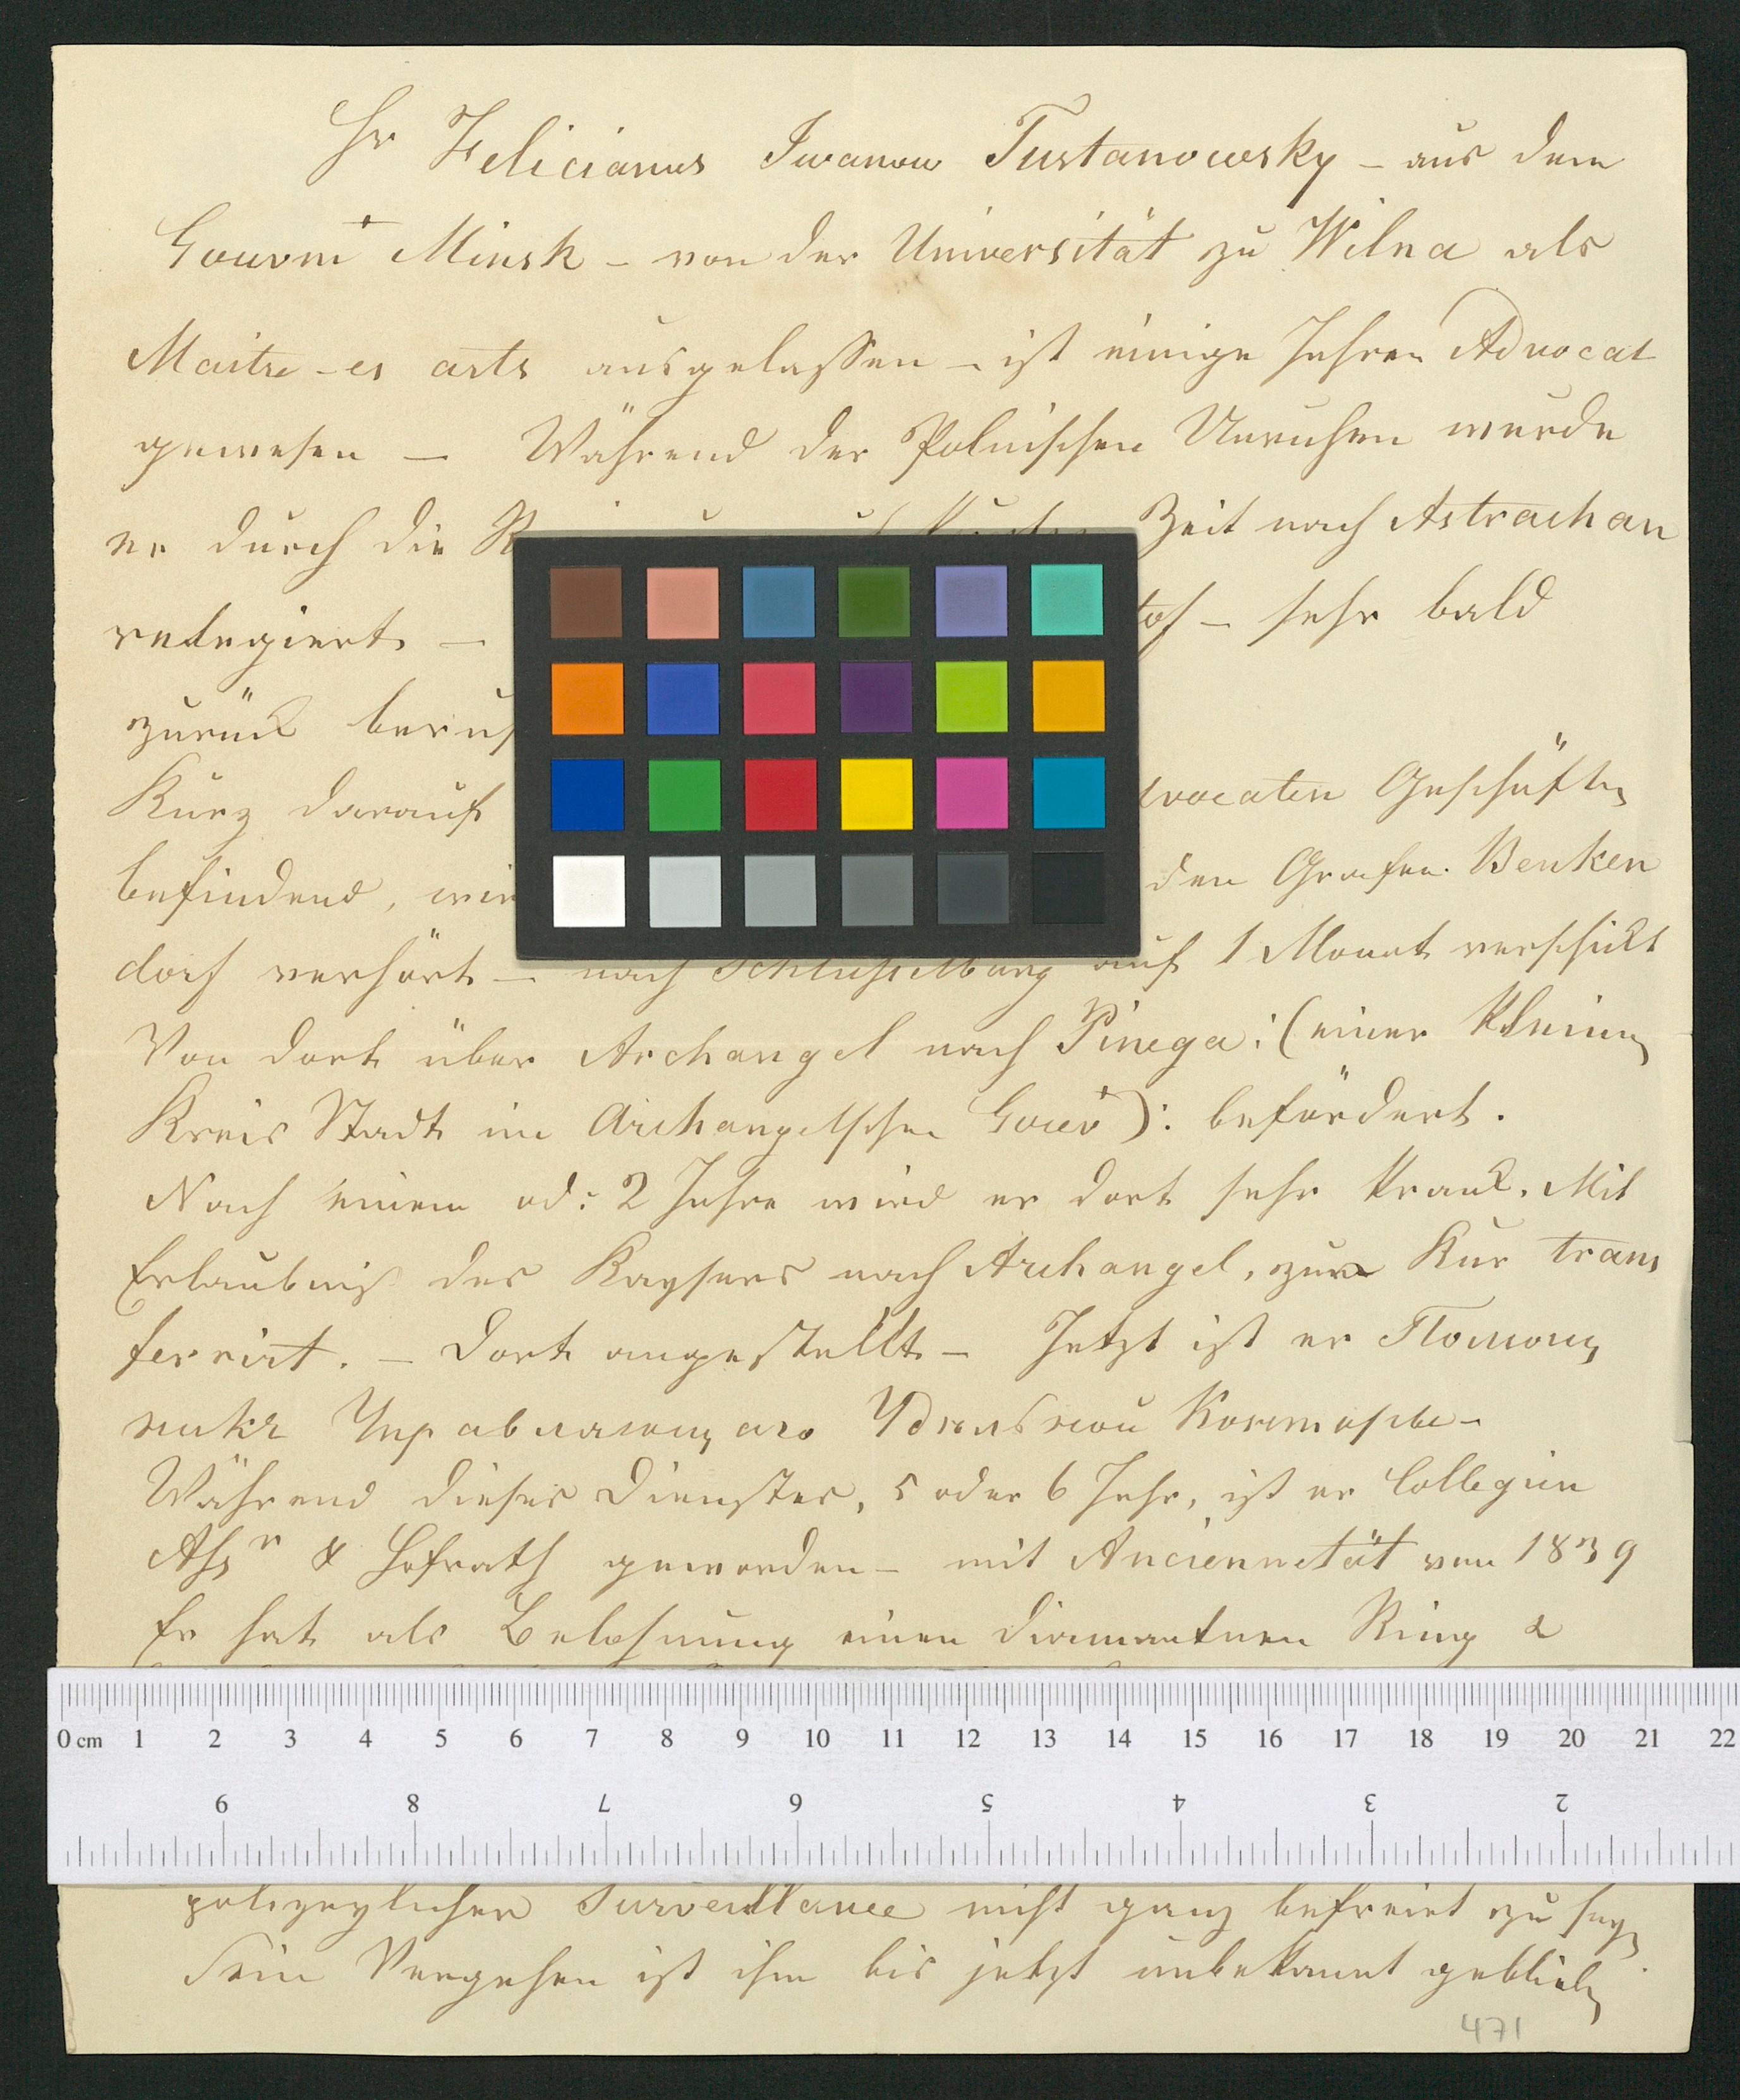 Hr Felicianus Iwanow Tustanowsky – aus dem
Gouvnt Minsk – von der Universität zu Wilna als
Maitre-es arts ausgelassen – ist einige Jahren Advocat
gewesen – Während der Polnischen Unruhen wurde
er durch die Zeit nach Astrachan
relegiert – sehr bald
zurück
Kurz darauf Geschäften
befindend, den Grafen Benken
dorf verhört – nach Schlüsselburg auf 1 Monat verschickt
Von dort über Archangel nach Pinega :(einer kleinen
Kreis Stadt im Archangelschen Gouvt): befördert.
Nach einem od: 2 Jahre wird er dort sehr krank. Mit
Erlaubniß des Kaysers nach Archangel, zur Kur trans
ferirt. – Dort angestellt – Jetzt ist er Помощ
никъ Управляющаго Удѣльной Конторы –
Während dieses Dienstes, 5 oder 6 Jahr, ist er Collegien
Assr & Hofrath geworden – mit Anciennetät von 1839
Er hat als Belohnung einen diamantnen Ring &
0 cm 1 2 3 4 5 6 7 8 9 10 11 12 13 14 15 16 17 18 19 20 21 22
9 8 7 6 5 4 3 2
polizeylichen Surveillance nicht ganz befreiet zu seyn.
Sein Vergehen ist ihm bis jetzt unbekannt geblieben
471